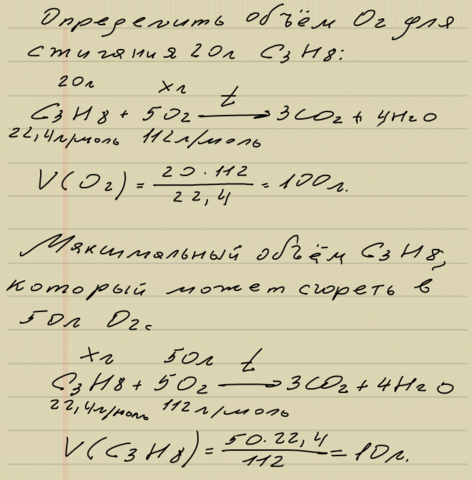 Определить объём O2 для
стигяния 20л C3H8:
20л хл
C3H8 + 5O2 t→ 3CO2 + 4H2O
22,4л/моль 112л/моль
V(O2) = 20·112 / 22,4 = 100л.
Мякшмальный объём C3H8,
который может сгореть в
50л O2.
хл 50л
C3H8 + 5O2 t→ 3CO2 + 4H2O
22,4л/моль 112л/моль
V(C3H8) = 50·22,4 / 112 = 10л.